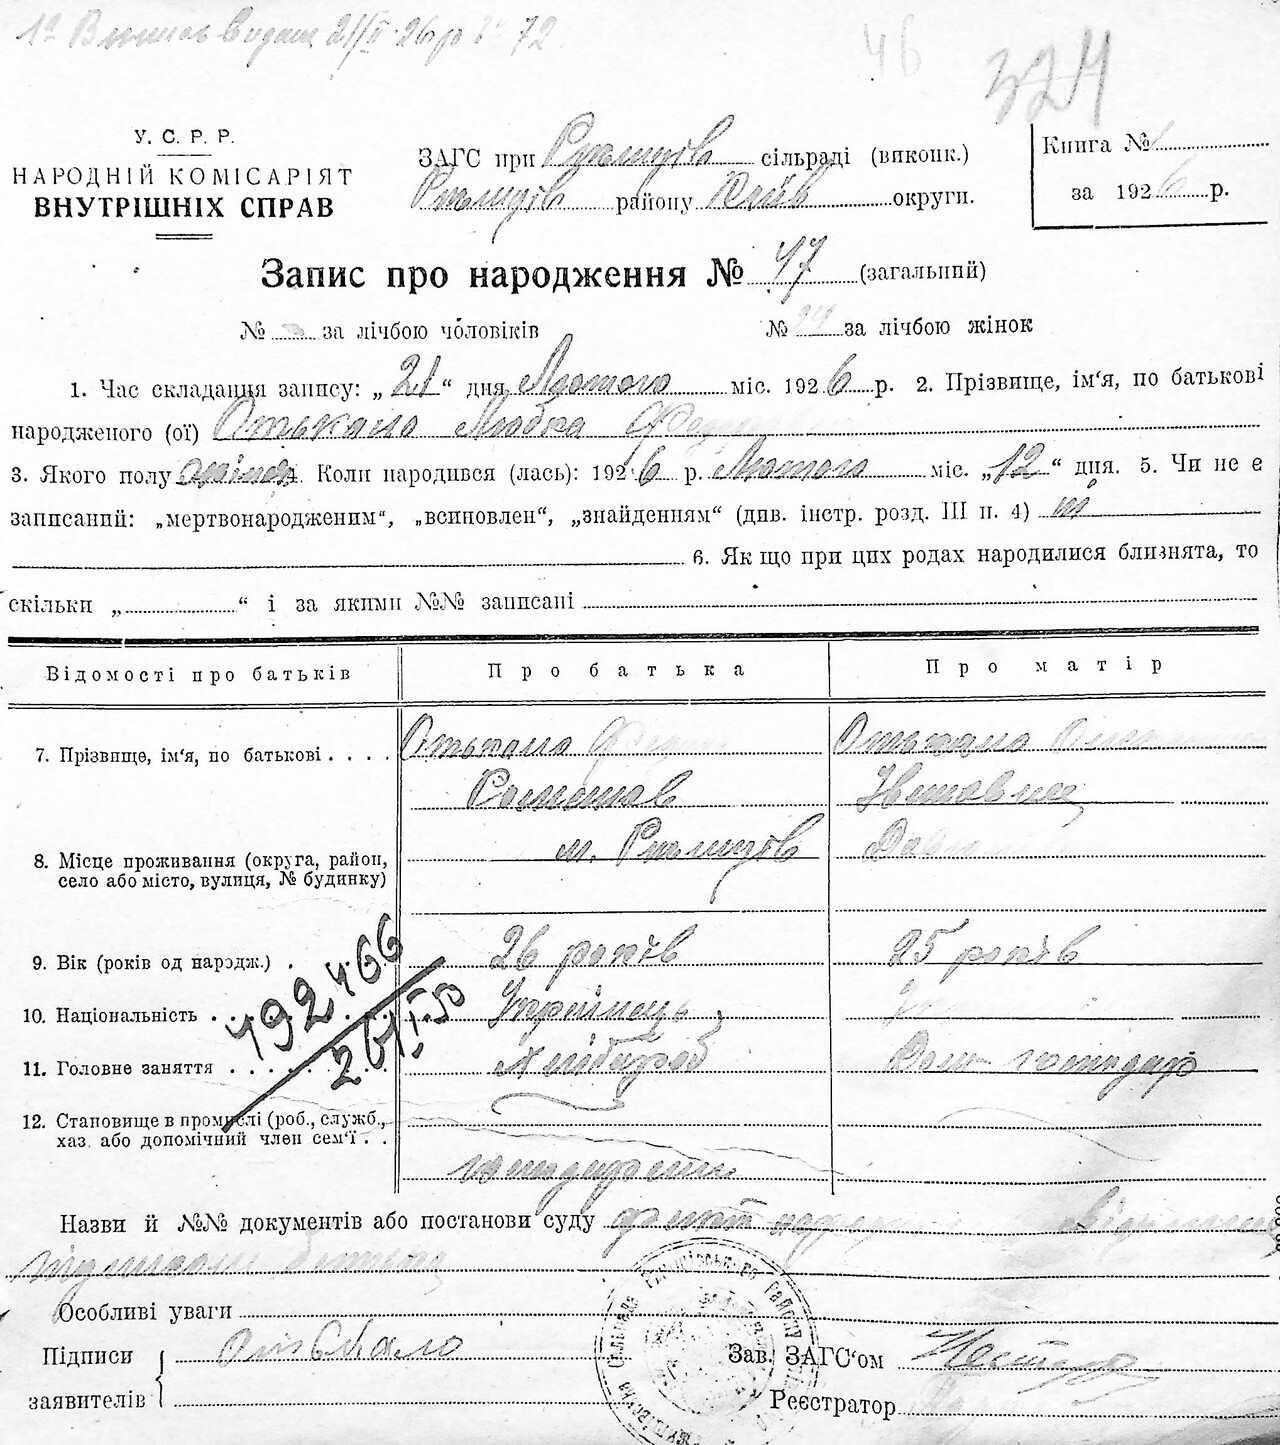 1ª Випись видана 21/II 26 р № 72
46
324
У. С. Р. Р.
НАРОДНІЙ КОМІСАРІЯТ
ВНУТРІШНІХ СПРАВ
ЗАГС при Ржищів сільраді (виконк.)
Ржищів району Київ округи.
Книга №
за 1926 р.
Запис про народження № 47 (загальний)
№ за лічбою чоловіків № 24 за лічбою жінок
1. Час складання запису: „21“ дня Лютого міс. 1926 р. 2. Прізвище, ім'я, по батькові
народженого (ої) Отькало Любка
3. Якого полу жіноч 4. Коли народився (лась): 1926 р. Лютого міс. „12“ дня. 5. Чи не є
записаний: „мертвонародженим“, „всиновлен“, „знайденням“ (див. інстр. розд. III п. 4) ні
6. Як що при цих родах народилися близнята, то
скільки „ “ і за якими №№ записані
Відомості про батьків Про батька Про матір
7. Прізвище, ім'я, по батькові . . . . Отькало Отькало
Романов
8. Місце проживання (округа, район, м. Ржищів
село або місто, вулиця, № будинку)
9. Вік (років од народж.) . 26 років 25 років
10. Національність . . . . Українець
11. Головне заняття . . . . Хлібороб Дом господар
192466
12. Становище в промислі (роб., служб.,
хаз. або допомічний член сем'ї . .
Назви й №№ документів або постанови суду
Особливі уваги
Підписи Отькало Зав. ЗАГС'ом
заявителів Реєстратор